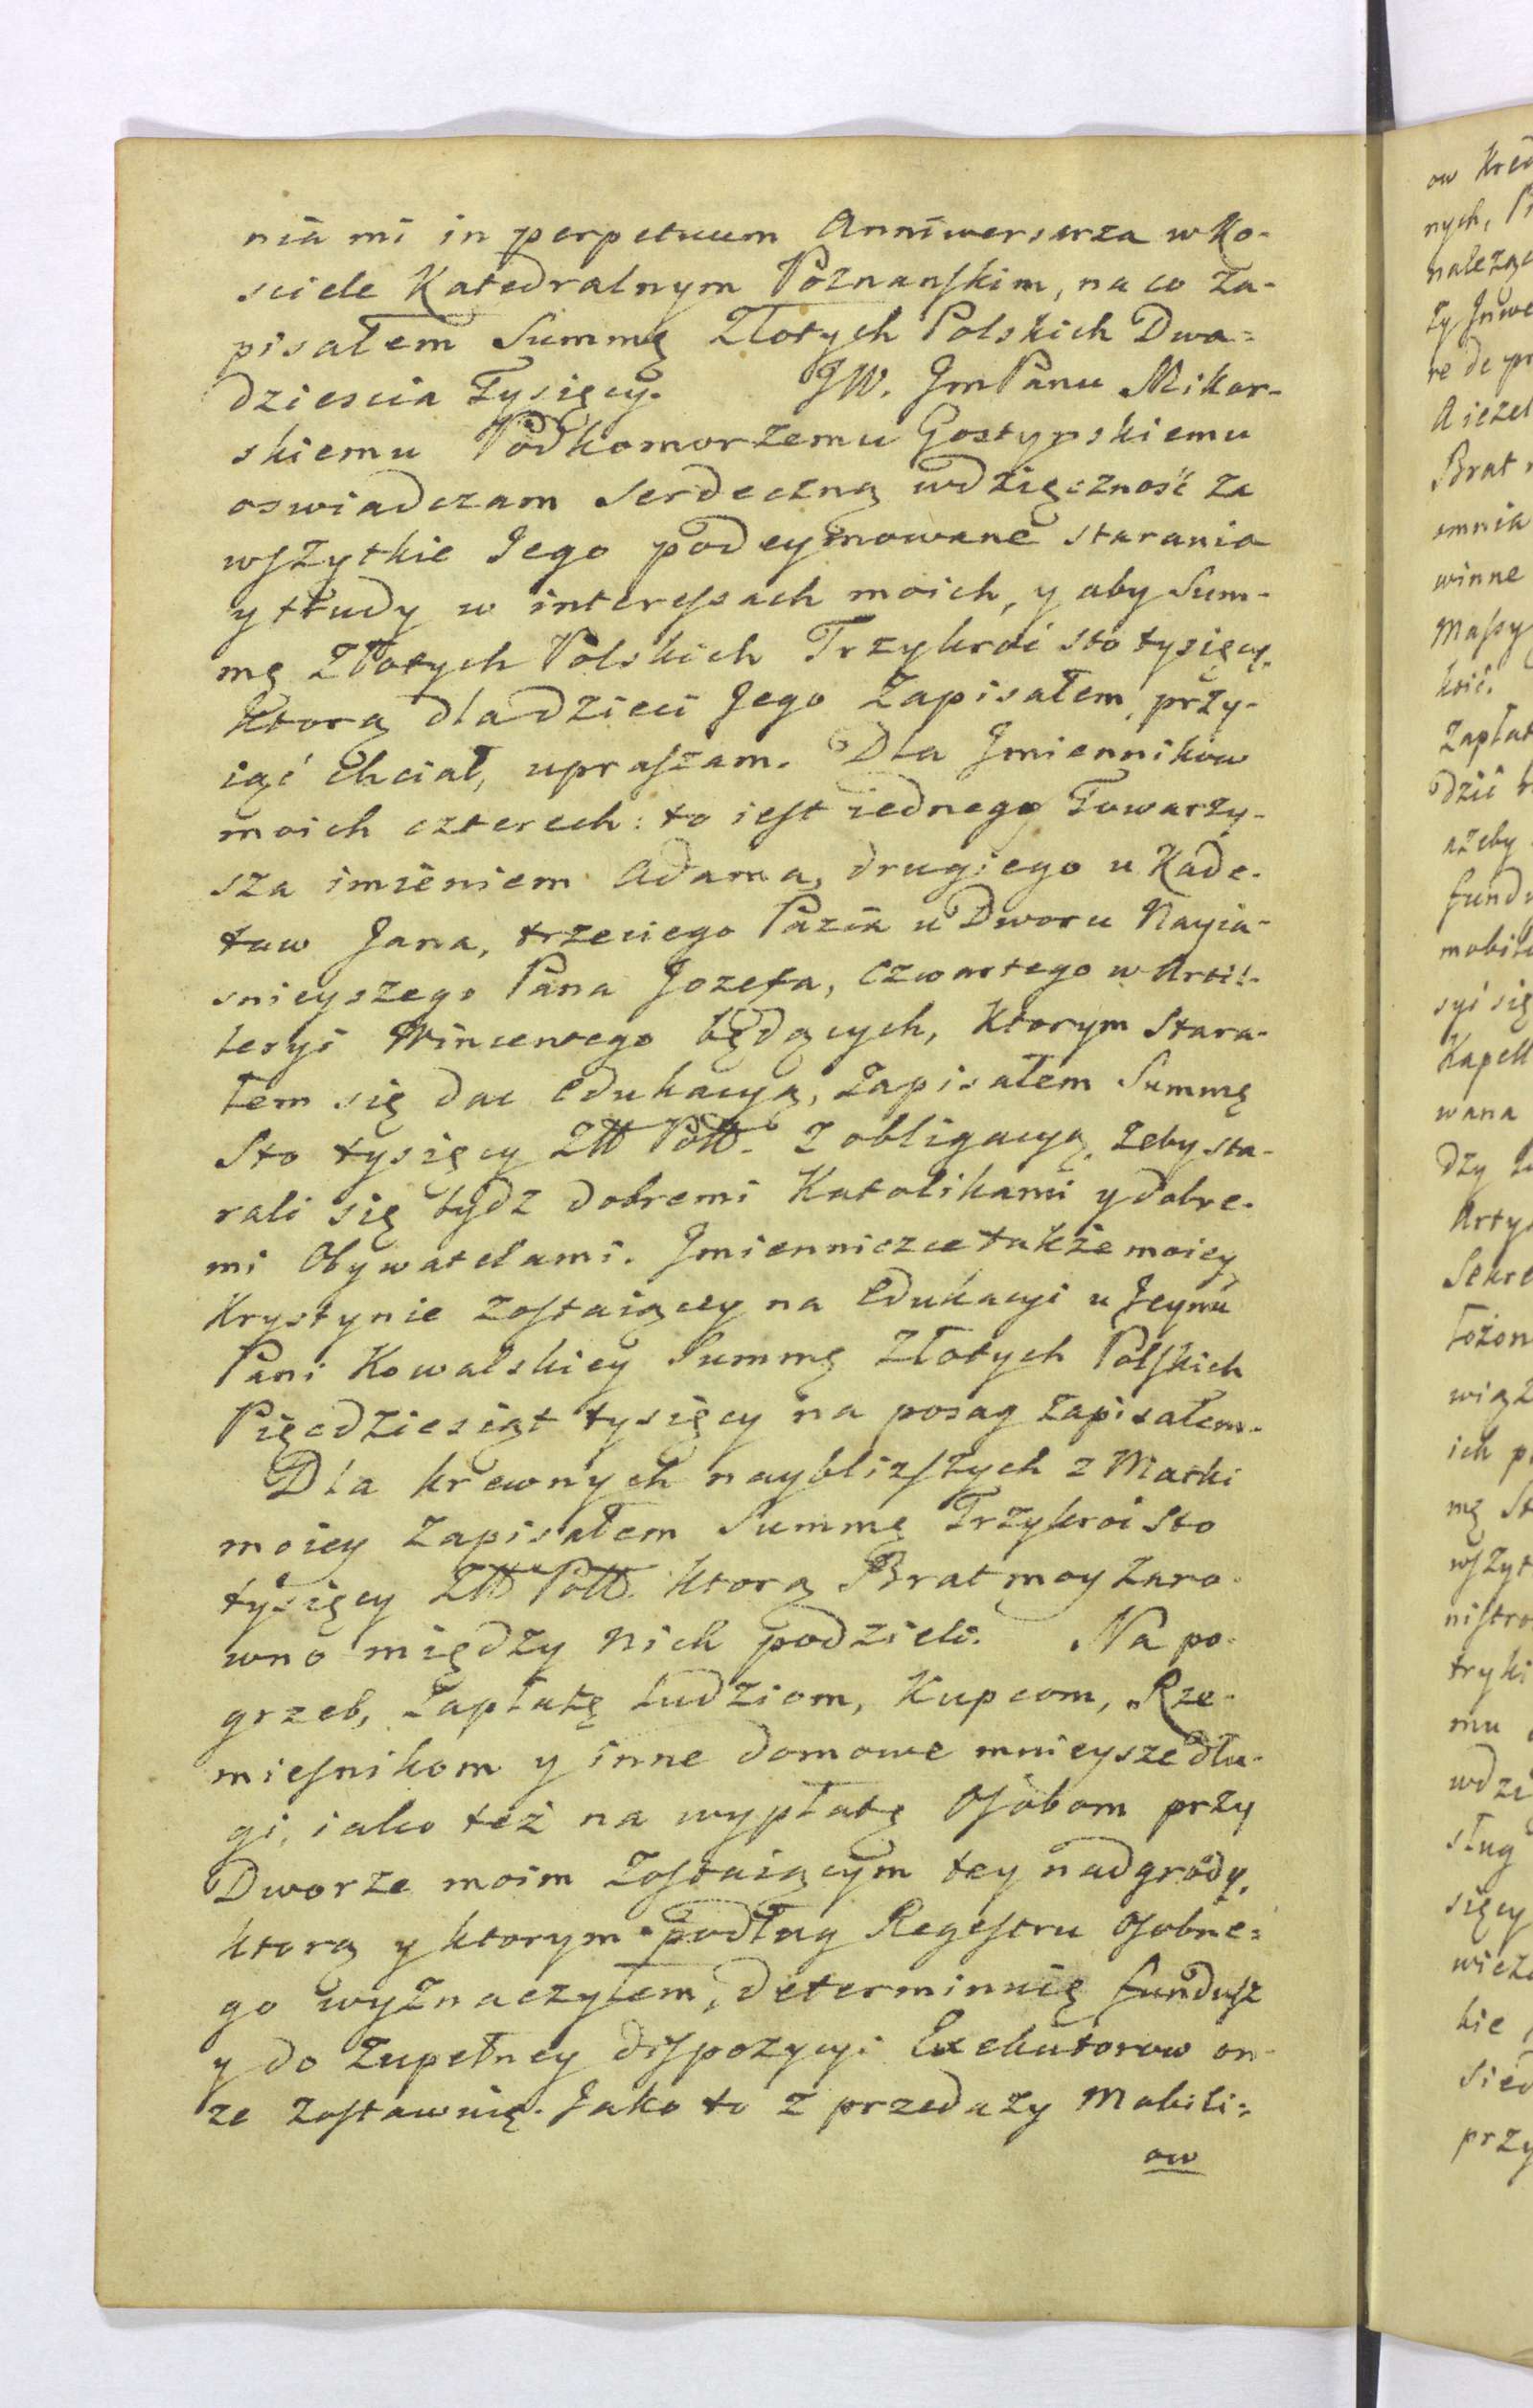 nia mi in perpetuum Anniwersarza w Ko-
sciele Katedralnym Poznanskim, na co za-
pisałem Summę Złotych Polskich Dwa=
dziescia Tysięcy. JW. JmPanu Mikor-
skiemu Podkomorzemu Gostynskiemu
oswiadczam serdeczną wdzięczność za
wszytkie Jego podeymowane starania
y trudy w interessach moich, y aby Sum-
mę Złotych Polskich Trzykroć sto tysięcy,
ktorą dla dzieci Jego zapisałem, przy-
iąć chciał, upraszam. Dla Jmiennikow
moich czterech: to iest iednego Towarzy-
sza imieniem Adama, drugiego u Kade-
tow Jana, trzeciego Pazia u Dworu Nayia-
snieyszego Pana Jozefa, Czwartego w Artil-
leryi Wincentego będących, ktorym stara-
łem się dac Edukacyą, zapisałem Summę
Sto tysięcy Złł Poll. z obligacyą, żeby sta-
rali się bydz dobremi Katolikami y dobre-
mi Obywatelami. Jmienniczce także moiey
Krystynie zostaiącey na Edukacyi u Jeymć
Pani Kowalskiey Summę Złotych Polskich
Pięcdziesiąt tysięcy na posag zapisałem.
Dla krewnych naybliższych z Matki
moiey zapisałem Summę Trzykroć sto
tysięcy Złł Poll. ktorą Brat moy zaro-
wno między nich podzieli. Na po-
grzeb, zapłatę ludziom, Kupcom, Rze-
miesnikom y inne domowe mnieysze dłu-
gi, iako też na wypłatę Osobom przy
Dworze moim zostaiącym tey nadgrody,
ktorą y ktorym podług Regestru osobne=
go wyznaczyłem, determinuię fundusz
y do zupełney dispozycyi Exekutorow on-
ze zostawuię. Jako to z przedaży Mobili=
ow
ow
nych,
ty
Brat
winne
Massy
ażeby
syć się
Kapell
wana
ich
mę
kie
przy